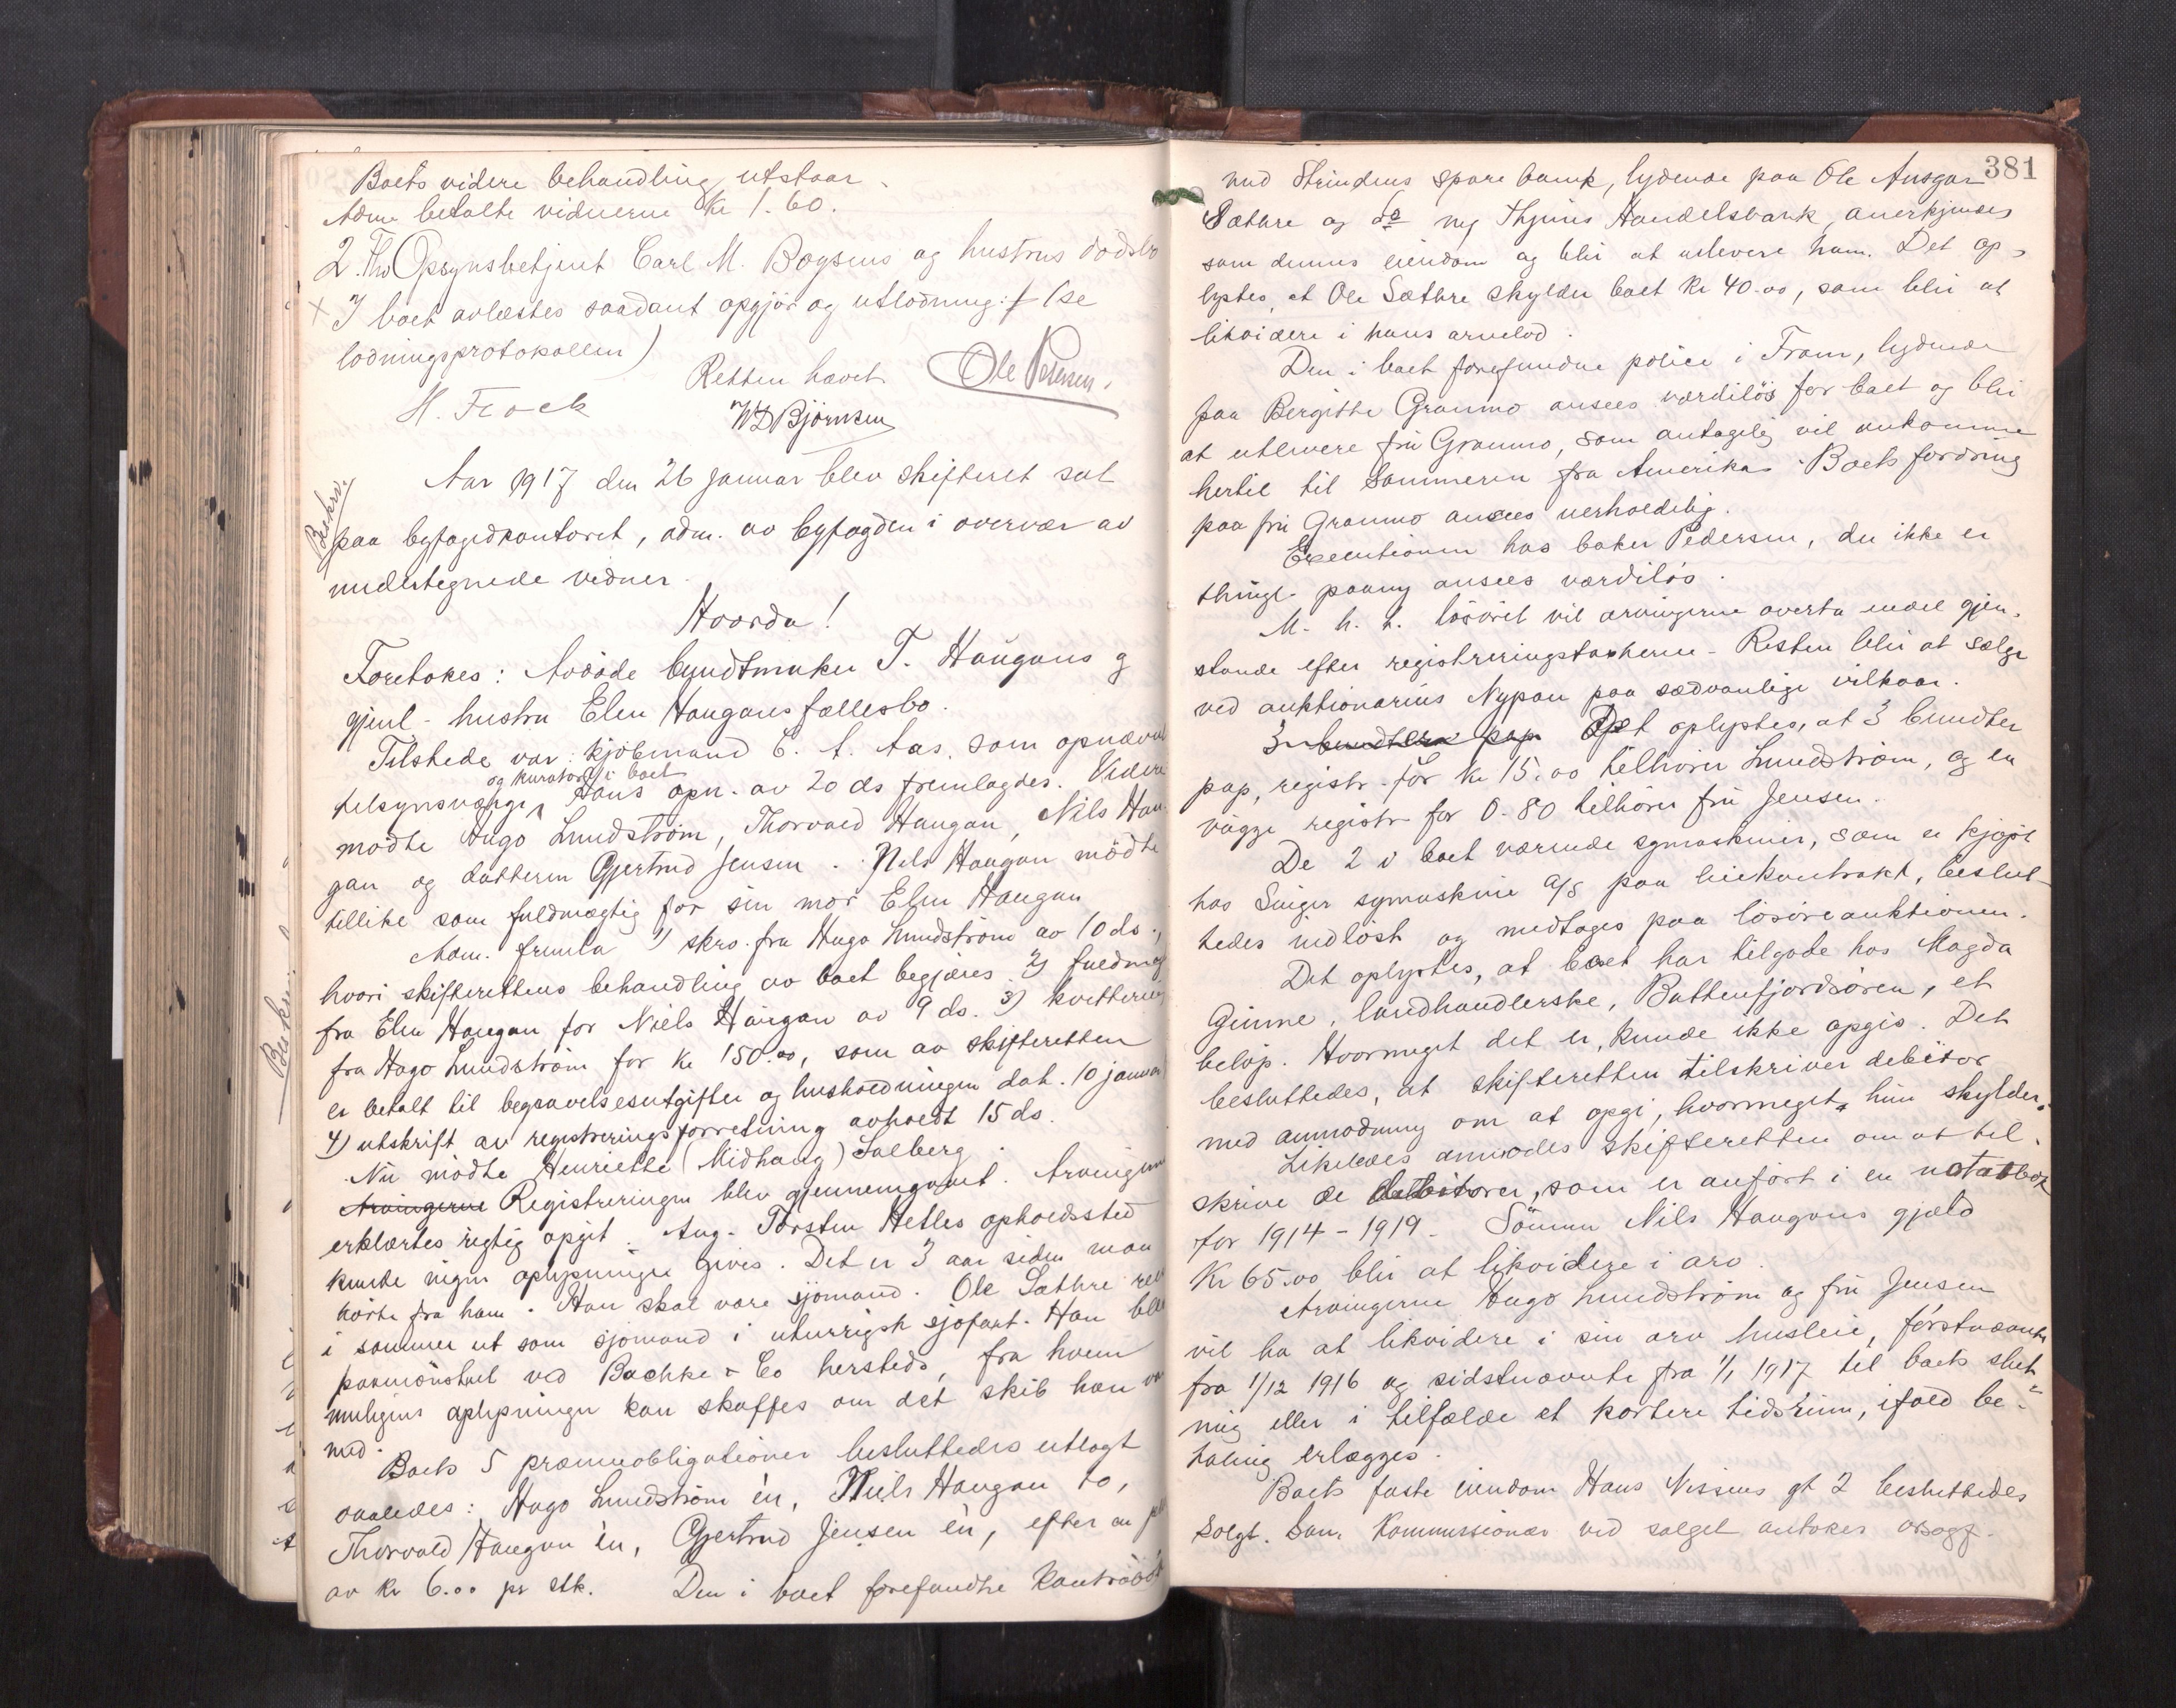 Boets videre behandling utstaar.
Adm. betalte vidnerne Kr 1.60.
2. Fhv Opsynsbetjent Carl M. Boysens og hustrus dødsbo
I boet avlæstes saadant opgjør og utlodning: (se
lodningsprotokollen)
Retten hævet Ole Petersen.
H. Frock WD Björnsen
Bekrv.
Aar 1917 den 26 januar blev skifteret sat
paa byfogedkontoret, adm. av byfogden i overvær av
undertegnede vidner.
Hvorda!
Foretokes: Avdøde bundtmaker T. Haugans g
gjenl. hustru Elen Haugans fællesbo.
Tilstede var: kjøbmand C. A. Aas, som opnævnt
og kurator i boet
tilsynsværge, Hans opn. av 20 ds fremlagdes. Videre
mødte Hugo Lundström, Thorvald Haugan, Nils Hau-
gan og datteren Gjertrud Jensen. Nils Haugan mödte
tillike som fuldmægtig for sin mor Elen Haugan
Adm. fremla 1) skrv. fra Hugo Lundström av 10 ds.,
hvori skifterettens behandling av boet begjæres 2) fuldmag
fra Elen Haugan for Niels Haugan av 9 ds. 3) kvittering
fra Hugo Lundström for kr 150.00, som av skifteretten
er betalt til begravelsesutgifter og husholdningen dat. 10 januar
4) utskrift av registreringsforretning avholdt 15 ds.
Nu mödte Henriette (Midhaug) Solberg
Arvingerne Registreringen blev gjennemgaaet. Arvingerne
erklærtes rigtig opgit. Aug. Torsten Hetles opholdssted
kunde ingen oplysninger gives. Det er 3 aar siden man
hörte fra ham. Han skal være sjömand. Ole Sæthre reis
i sommer ut som sjömand i utenrigsk sjöfart. Han blev
paamönstret ved Bachke & Co hersteds, fra hvem
muligens oplysninger kan skaffes om det skib han var
med.
Boets 5 præmieobligationer besluttedes utlagt
saaledes: Hugo Lundström én, Niels Haugan to,
Thorvald Haugan én, Gjertrud Jensen én, efter en
av kr 6.00 pr stk. Den i boet forefundne
381
ved Strindens sparebank, lydende paa Ole Ansgar
Sæthre og do ny Thjems Handelsbank, anerkjendes
som dennes eiendom og blir at utlevere ham. Det op-
lystes, at Ole Sæthre skylder boet Kr 40.00, som blir at
likvidere i hans arvelod.
Den i boet forefundne police i Fram, lydende
paa Bergitte Granmo ansees værdilös for boet og blir
at utlevere fru Granmo, som antagelig vil ankomme
hertil til sommeren fra Amerika. Boets fordring
paa fru Granmo ansees uerholdelig.
Executionen hos baker Pedersen, der ikke er
thingl. paany ansees værdilös.
M. h. t. lösöret vil arvingerne overta endel gjen-
stande efter registreringstaksterne. Resten blir at sælge
ved auktionarius Nypan paa sædvanlige vilkaar.
3 bundter pap Det oplystes, at 3 bundter
pap, registr. for kr 15.00 tilhörer Lundström, og en
vugge registr for 0.80 tilhörer fru Jensen.
De 2 i boet værende symaskiner, som er kjøpt
hos Singer symaskine A/S paa leiekontrakt, beslut-
tedes indlöst og medtages paa lösöreauktionen.
Det oplystes, at boet har tilgode hos Magda
Ginne, landhandlerske, Battenfjordsören, et
belöp. Hvormeget det er, kunde ikke opgis. Det
besluttedes, at skifteretten tilskriver debitor
med anmodning om at opgi, hvormeget hun skylder.
Likeledes anmodes skifteretten om at til-
skrive de debitorer, som er anfört i en notatbok
for 1914-1919. Sönnen Nils Haugans gjæld
Kr 65.00 blir at likvidere i arv.
Arvingerne Hugo Lundström og fru Jensen
vil ha at likvidere i sin arv husleie, förstnævnte
fra 1/12 1916 og sidstnævnte fra 1/1 1917 til boets slut-
ning eller i tilfælde et kortere tidsrum, ifald be-
taling erlægges.
Boets faste eiendom Hans Nissens gt 2 besluttedes
solgt. Som Kommissionær ved salget antokes